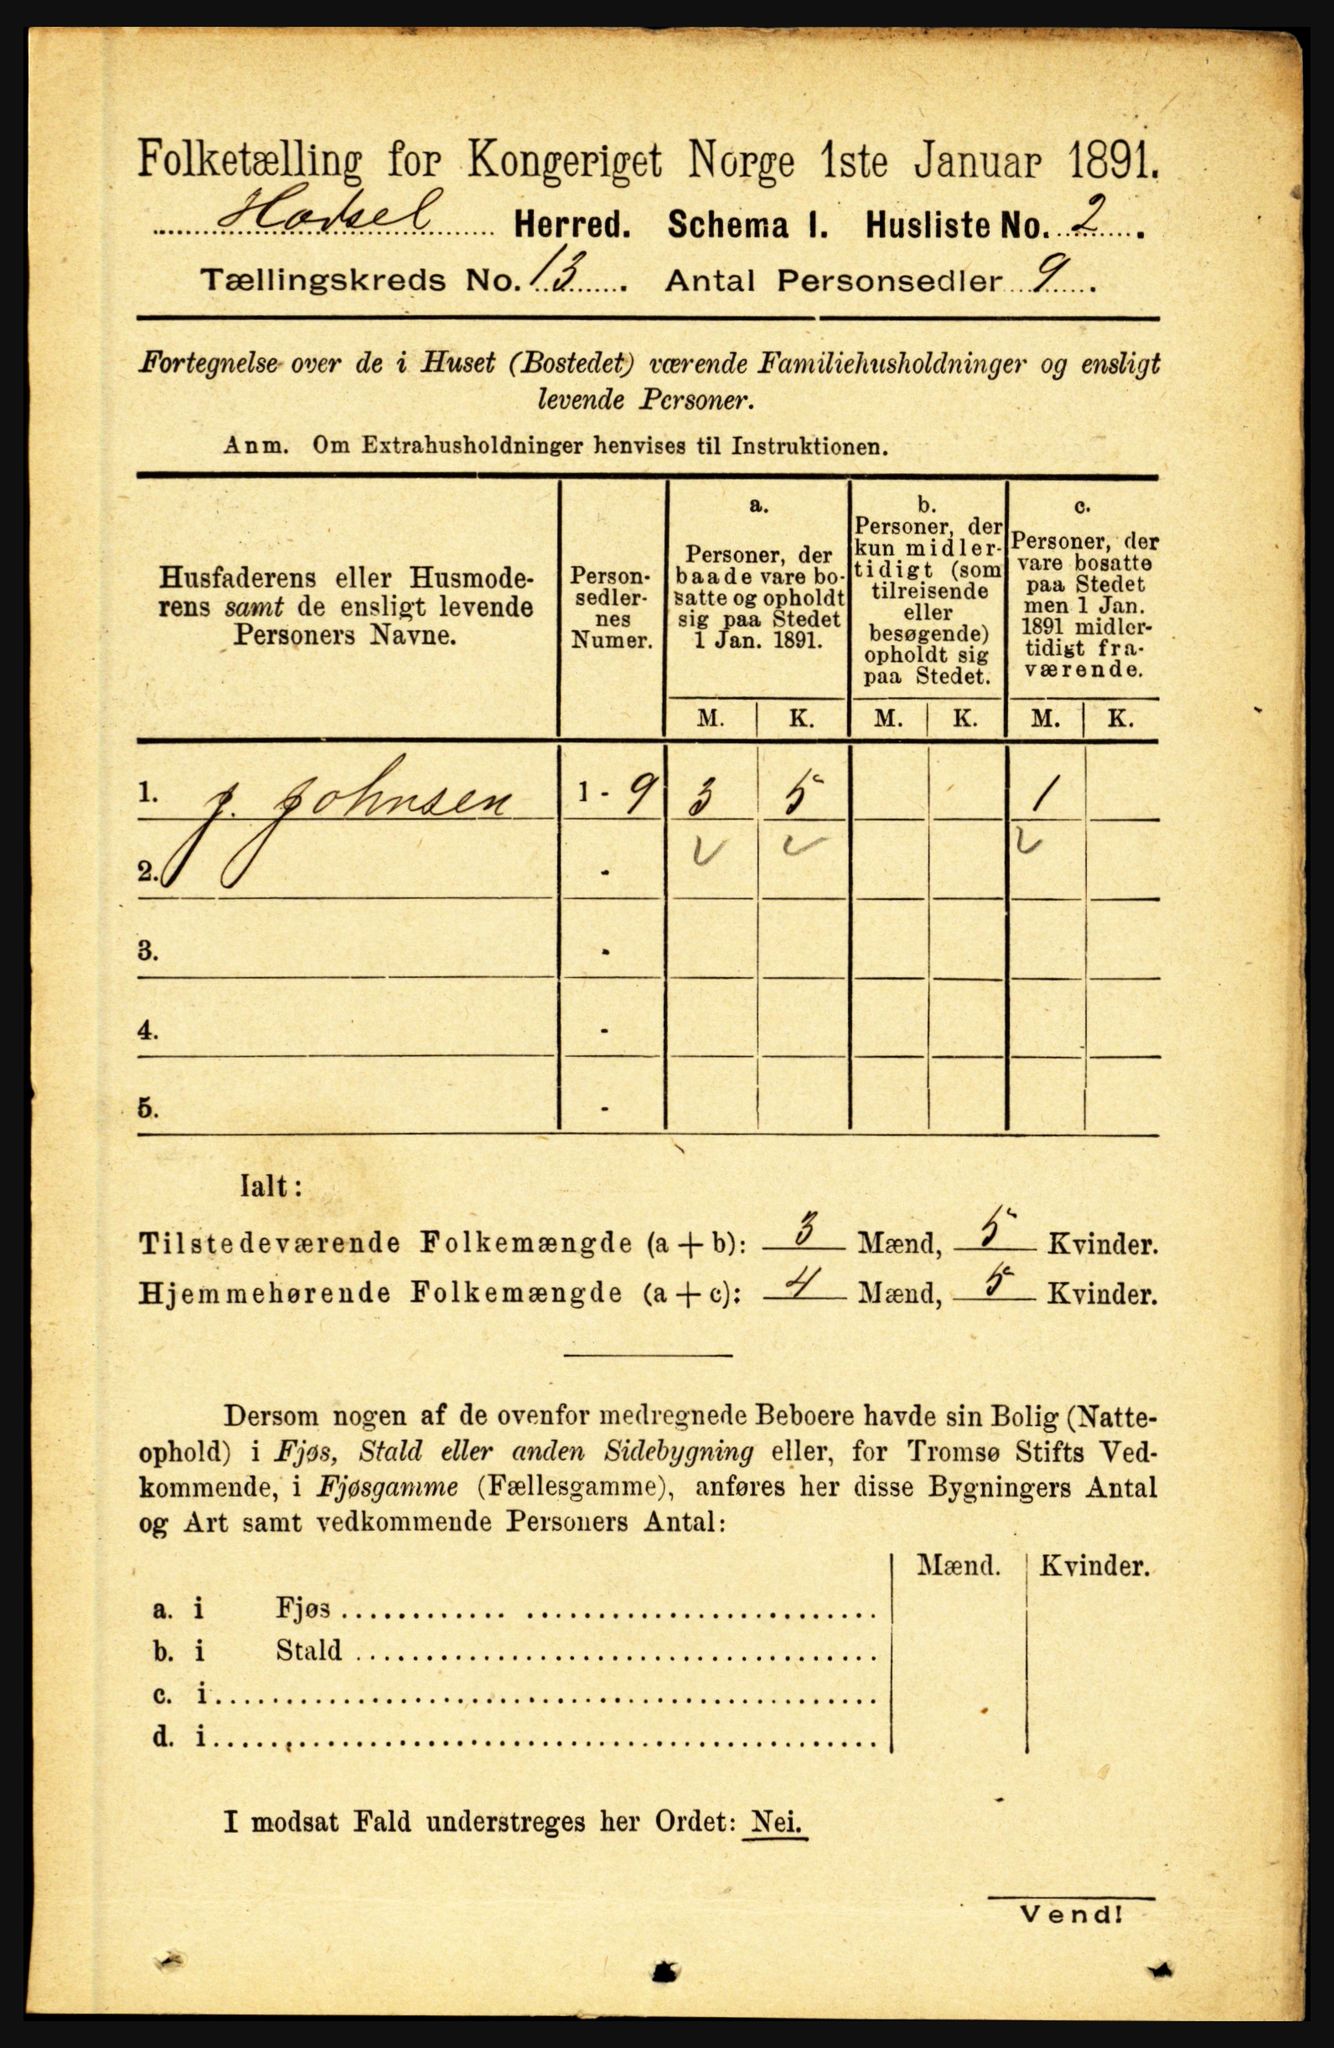 Folketælling for Kongeriget Norge 1ste Januar 1891.
Hadsel Herred. Schema I. Husliste No. 2.
Tællingskreds No. 13. Antal Personsedler 9.
Fortegnelse over de i Huset (Bostedet) værende Familiehusholdninger og ensligt
levende Personer.
Anm. Om Extrahusholdninger henvises til Instruktionen.
Husfaderens eller Husmode-
rens samt de ensligt levende
Personers Navne.
Person-
sedler-
nes
Numer.
a.
Personer, der
baade vare bo-
satte og opholdt
sig paa Stedet
1 Jan. 1891.
b.
Personer, der
kun midler-
tidigt (som
tilreisende
eller
besøgende)
opholdt sig
paa Stedet.
c.
Personer, der
vare bosatte
paa Stedet
men 1 Jan.
1891 midler-
tidigt fra-
værende.
M. K. M. K. M. K.
1. J. Johnsen 1 - 9 3 5 1
2. -
3. -
4. -
5. -
Ialt:
Tilstedeværende Folkemængde (a + b): 3 Mænd, 5 Kvinder.
Hjemmehørende Folkemængde (a + c): 4 Mænd, 5 Kvinder.
Dersom nogen af de ovenfor medregnede Beboere havde sin Bolig (Natte-
ophold) i Fjøs, Stald eller anden Sidebygning eller, for Tromsø Stifts Ved-
kommende, i Fjøsgamme (Fællesgamme), anføres her disse Bygningers Antal
og Art samt vedkommende Personers Antal:
Mænd. Kvinder.
a. i Fjøs
b. i Stald
c. i
d. i
I modsat Fald understreges her Ordet: Nei.
Vend!